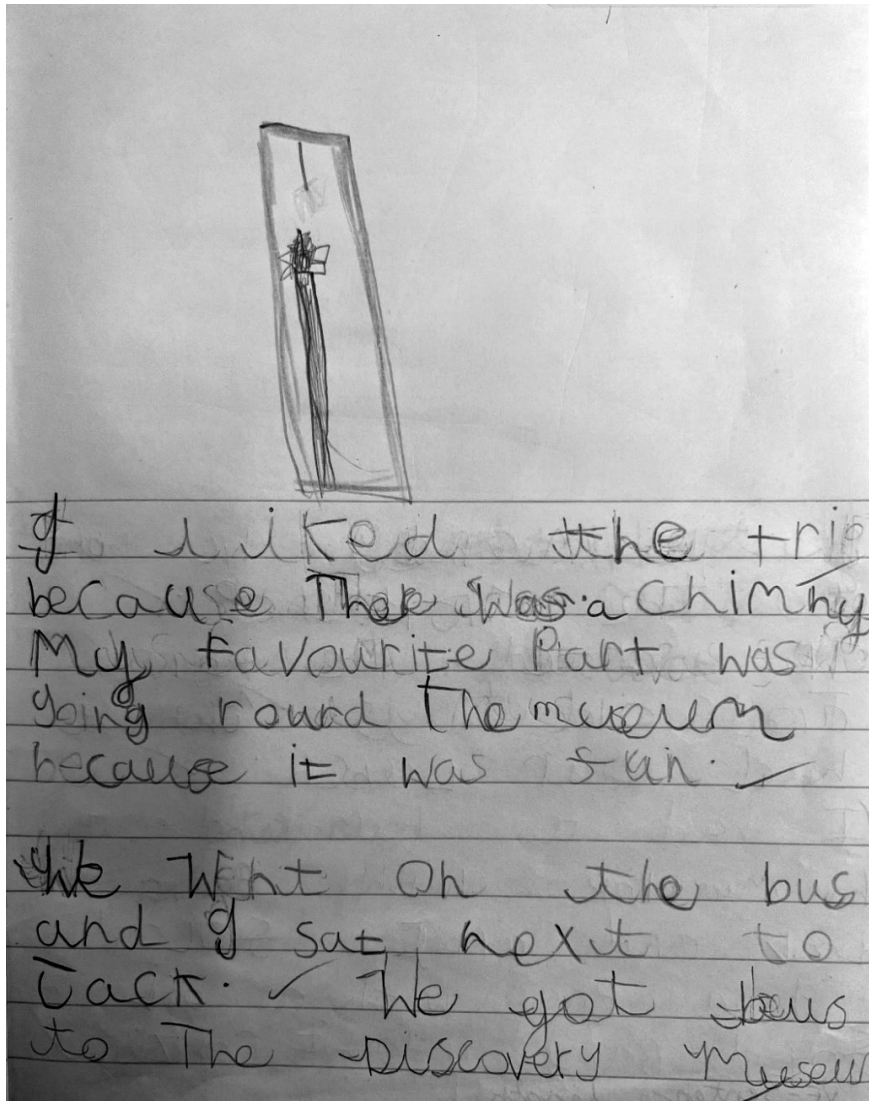 I liked the trip
because There was a Chimny
My favourite Part was
going round The museum
because it was fun.
We Went on the bus
and I sat next to
Jack. We got bus
to The Discovery Museu